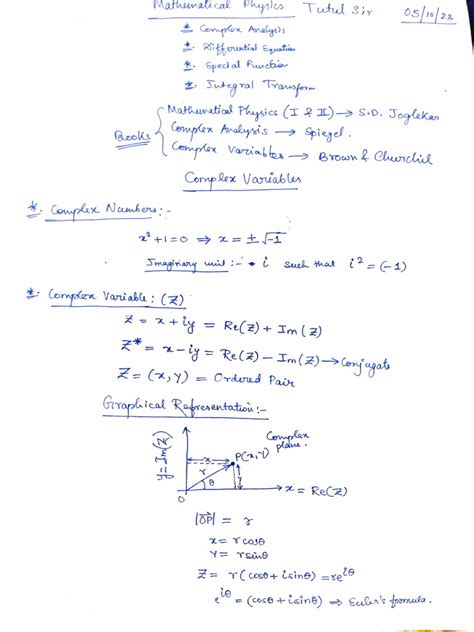 Mathematical Physics Tutul Sir 05/10/23
* Complex Analysis
* Differential Equation
* Special Function
* Integral Transform
Books { Mathematical Physics (I & II) → S.D. Joglekar
Complex Analysis → Spiegel.
Complex Variables → Brown & Churchil
Complex Variables
* Complex Numbers:-
x²+1=0 ⇒ x = ±√-1
Imaginary unit:- • i such that i² = (-1)
* Complex Variable: (Z)
Z = x+iy = Re(Z) + Im(Z)
Z* = x-iy = Re(Z) - Im(Z) → Conjugate
Z = (x,y) = Ordered Pair
Graphical Representation:-
y = Im(Z)
Complex plane.
x
P(x,y)
r
y
θ
O
x = Re(Z)
|OP| = r
x = r cosθ
y = r sinθ
Z = r(cosθ + i sinθ) = re^iθ
e^iθ = (cosθ + i sinθ) ⇒ Euler's formula.